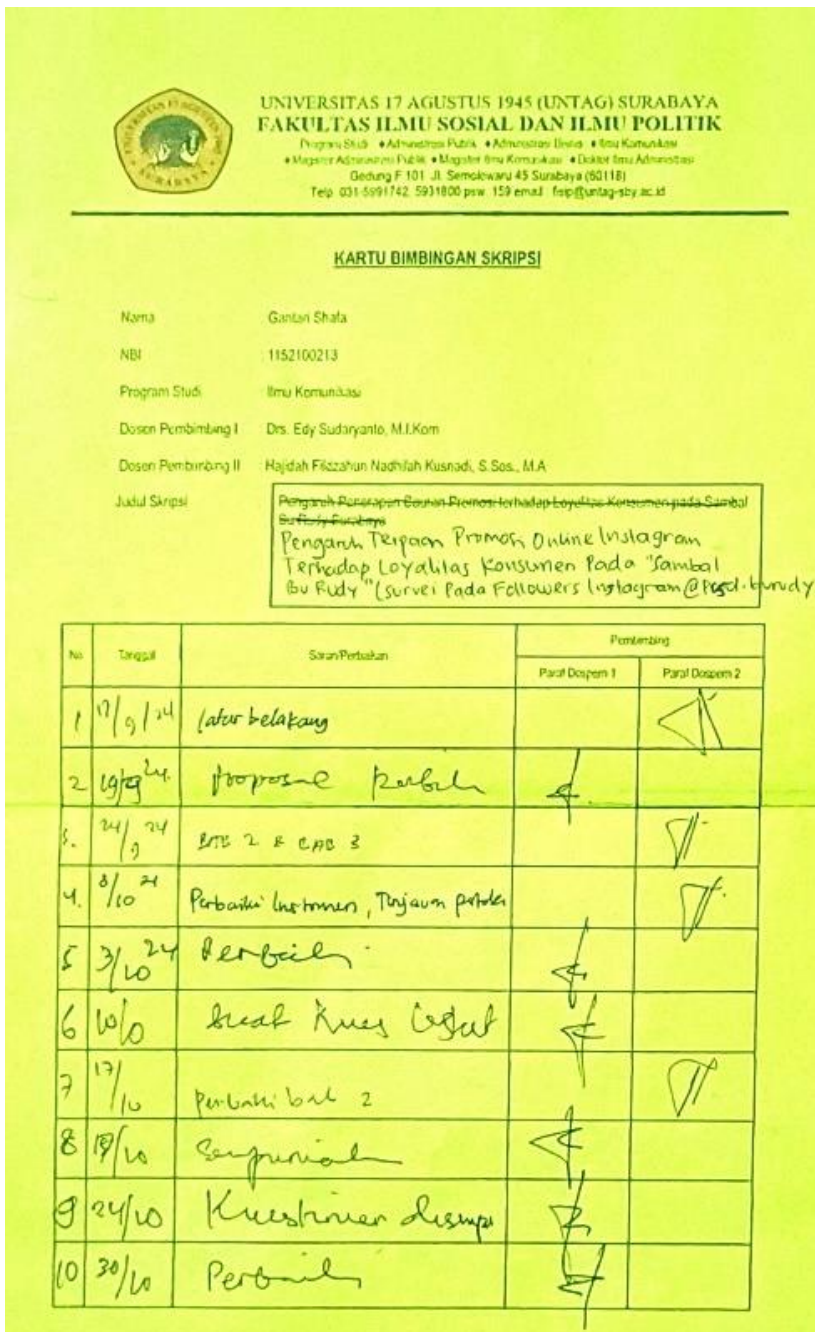 UNIVERSITAS 17 AGUSTUS 1945 (UNTAG) SURABAYA
FAKULTAS ILMU SOSIAL DAN ILMU POLITIK
Program Studi ♦ Administrasi Publik ♦ Administrasi Bisnis ♦ Ilmu Komunikasi
♦ Magister Administrasi Publik ♦ Magister Ilmu Komunikasi ♦ Doktor Ilmu Administrasi
Gedung F 101 Jl. Semolowaru 45 Surabaya (60118)
Telp. 031-5991742, 5931800 psw. 159 email : fisip@untag-sby.ac.id
KARTU BIMBINGAN SKRIPSI
Nama Gantari Shafa
NBI : 1152100213
Program Studi Ilmu Komunikasi
Dosen Pembimbing I Drs. Edy Sudaryanto, M.I.Kom
Dosen Pembimbing II Hajidah Fildzahun Nadhilah Kusnadi, S.Sos., M.A
Judul Skripsi Pengaruh Penerapan Bauran Promosi terhadap Loyalitas Konsumen pada Sambal
Bu Rudy Surabaya
Pengaruh Terpaan Promosi Online Instagram
Terhadap Loyalitas Konsumen Pada "Sambal
Bu Rudy" (Survei Pada Followers Instagram
No Tanggal Saran/Perbaikan Pembimbing
Paraf Dospem 1 Paraf Dospem 2
1 17/9/24 latar belakang
2 19/9 24. Proposal
3. 24/9 24 BAB 2 & BAB 3
4. 8/10 24 Perbaiki Instrumen, Tinjauan
5 3/10 24 Perbaiki
6 10/10 buat Kues
7 17/10 Perbaiki bab 2
8 /10
9 24/10 Kuesioner
10 30/10 Perbaiki